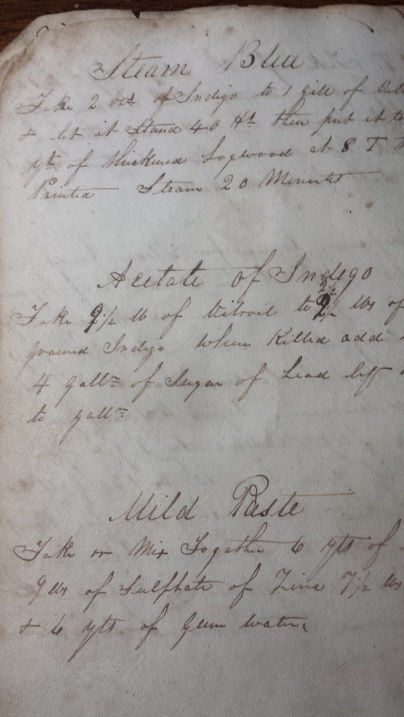 Steam Blue
Take 2 ozs of Indigo to 1 gill of
& let it Stand 48 Hs then put it to
qts of thickened Logwood at 8 T
Printed Steam 20 Minutes
Acetate of Indigo
Take 9½ lb of Vitroil to 2½ lbs of
ground Indigo when Killed add
4 galls of Sugar of Lead left
to galls
Mild Paste
Take or Mix Together 6 qts of
9 lbs of Sulphate of Zinc 7½ lbs
& 6 qts of Gum water